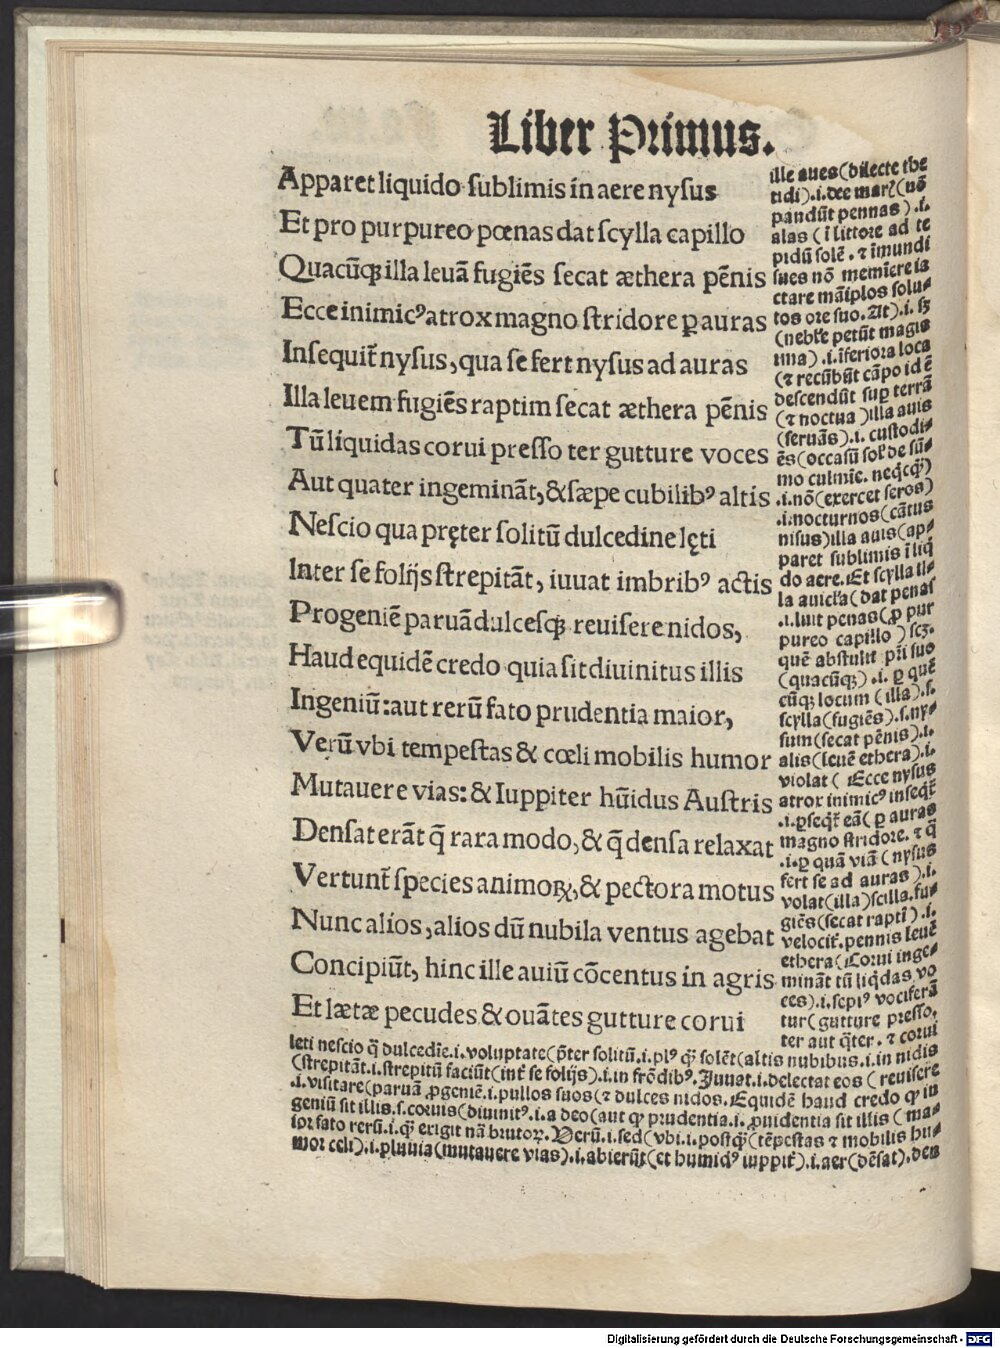 Liber Primus.
Apparet liquido sublimis in aere nysus
Et pro purpureo pœnas dat scylla capillo
Quacũqꝫ illa leuã fugiẽs secat æthera pẽnis
Ecce inimicꝰ atrox magno stridore ꝑ auras
Insequit̃ nysus, qua se fert nysus ad auras
Illa leuem fugiẽs raptim secat æthera pẽnis
Tũ liquidas corui presso ter gutture voces
Aut quater ingeminãt, & sæpe cubilibꝰ altis
Nescio qua pręter solitũ dulcedine lęti
Inter se folijs strepitãt, iuuat imbribꝰ actis
Progeniẽ paruã dulcesqꝫ reuisere nidos,
Haud equidẽ credo quia sit diuinitus illis
Ingeniũ: aut rerũ fato prudentia maior,
Verũ vbi tempestas & cœli mobilis humor
Mutauere vias: & Iuppiter hũidus Austris
Densat erãt q̃ rara modo, & q̃ densa relaxat
Vertunt̃ species animoꝝ, & pectora motus
Nunc alios, alios dũ nubila ventus agebat
Concipiũt, hinc ille auiũ cõcentus in agris
Et lætæ pecudes & ouãtes gutture corui
ille aues (dilecte the
tidi).i.dee mar̃ (nõ
pandũt pennas).i.
alas (ĩ littore ad te
pidũ solẽ. ⁊ ĩmundi
sues nõ meminere ia
ctare mãiplos solu⸗
tos ore suo. At).i. sꝫ
(nebl̃e petũt magis
ima).i.ĩferiora loca
(⁊ recũbũt cãpo id ẽ
descendũt suꝑ terrã
(⁊ noctua) illa auis
(seruãs).i. custodi⸗
ẽs (occasũ sol̃ de sũ⸗
mo culmĩe. neq̃cq̃)
.i.nõ (exercet seros)
.i.nocturnos (cãtus
nisus) illa auis (ap⸗
paret sublimis ĩ liq̃
do aere. Et scylla il⸗
la auicl̃a (dat penas
.i.luit penas (ꝓ pur
pureo capillo) scꝫ.
quẽ abstulit pr̃i suo
(quacũqꝫ).i. ꝑ quẽ
cũqꝫ locum (illa).s.
scylla (fugiẽs).s.ny⸗
sum (secat pẽnis).i.
alis (leuẽ ethera).i.
violat (Ecce nysus
atrox inimicꝰ inseq̃t̃
.i.ꝑseq̃t̃ eã (ꝑ auras
magno stridore. ⁊ q̃
.i.ꝑ quã viã (nysus
fert se ad auras).i.
volat (illa) scilla. fu⸗
giẽs (secat raptĩ).i.
velocit̃. pennis leuẽ
ethera (Corui inge⸗
minãt tũ liq̃das vo
ces).i.sepiꝰ vociferã
tur (gutture presso.
ter aut q̃ter. ⁊ corui
leti nescio q̃ dulcedĩe.i.voluptate (p̃ter solitũ.i.plꝰ q̃ solẽt (altis nubibus.i.in nidis
(strepitãt.i.strepitũ faciũt (int̃ se folijs).i.in frõdibꝰ. Juuat.i.delectat eos (reuisere
.i.visitare (paruã ꝓgeniẽ.i.pullos suos (⁊ dulces nidos. Equidẽ haud credo ꝙ in
geniũ sit illis.s.coruis (diuinitꝰ.i.a deo (aut ꝙ prudentia.i.ꝓuidentia sit illis (ma⸗
ior fato rerũ.i.q̃ erigit nã brutoꝝ. Verũ.i.sed (vbi.i.postq̃ (tẽpestas ⁊ mobilis hu⸗
mor celi).i.pluuia (mutauere vias).i.abierũt (et humidꝰ iuppit̃).i.aer (dẽsat).den
Digitalisierung gefördert durch die Deutsche Forschungsgemeinschaft - DFG